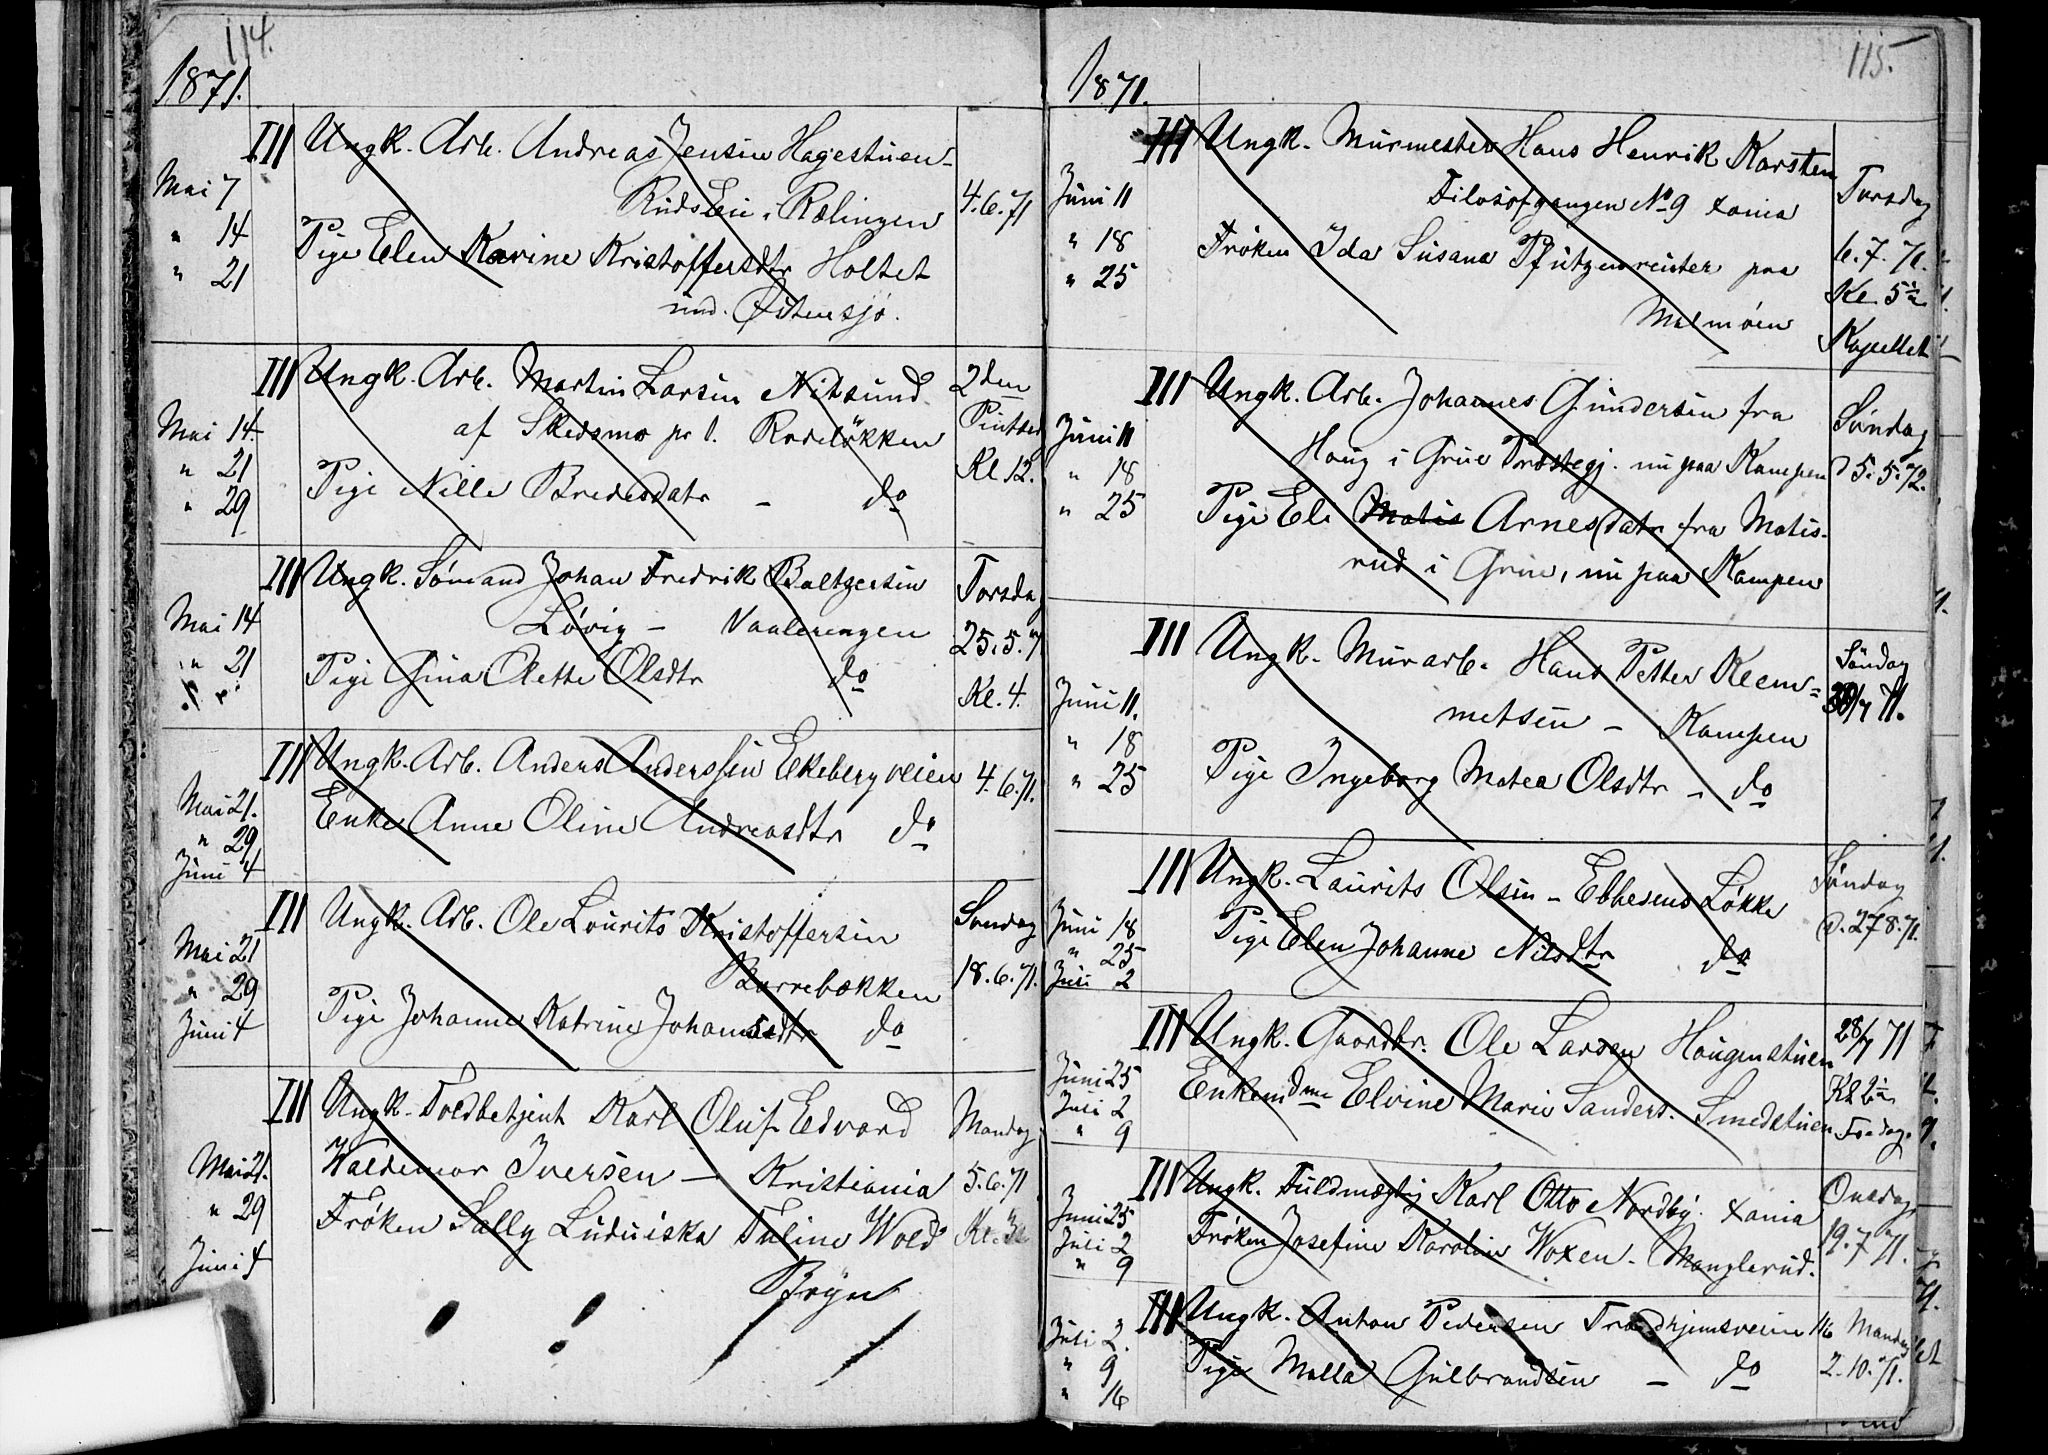 114.
1871.
III Ungk. Arb. Andreas Jensen Hagestuen-
Mai 7 Ruds Eie i Rælingen 4.6.71
" 14 Pige Elen Karine Kristoffersdtr Holtet
" 21 und. Østensjø.
III Ungk. Arb. Martin Larsen Nitsund 2den
Mai 14 af Skedsmo pr t. Rodeløkken Pintsed
" 21 Pige Nille Bredesdatr - do Kl 12.
" 29
III Ungk. Sømand Johan Fredrik Baltzersen Torsdag
Mai 14 Løvig - Vaalerengen 25.5.71
" 21 Pige Gina Olette Olsdtr do Kl. 4.
III Ungk. Arb. Anders Anderssen Ekebergveien 4.6.71.
Mai 21. Enke Anne Oline Andreasdtr do
" 29
Juni 4
III Ungk. Arb. Ole Lourits Kristoffersen Søndag
Mai 21 Barrebækken 18.6.71.
" 29 Pige Johanne Katrine Johannesdtr do
Juni 4
III Ungk. Toldbetjent Karl Oluf Edvard Mandag
Mai 21. Waldemar Iversen - Kristiania 5.6.71
" 29 Frøken Sally Luduiska Taline Wold Kl.
Juni 4 Bryn
115.
1871.
III Ungk. Murmester Hans Henrik Karsten
Juni 11 Filosofgangen No 9 Xania Torsdag
" 18 Frøken Ida Susana Pfützenreuter paa 6.7.71.
" 25 Malmøen Kl. 5½
Kapellet
III Ungk. Arb. Johannes Gundersen fra Søndag
Juni 11 Houg i Grue Præstegj. nu paa Kampen d 5.5.72.
" 18 Pige Eli Matis Arnesdatr fra Matis-
" 25 rud i Grue, nu paa Kampen
III Ungk. Murarb. Hans Petter Klem= Søndag
Juni 11. metsen - Kampen 30/7 71.
" 18 Pige Ingeborg Matea Olsdtr - do
" 25
III Ungk. Laurits Olsen - Ebbesens Løkke Søndag
Juni 18 Pige Elen Johanne Nilsdtr do d. 27 8.71.
" 25
Juli 2
III Ungk. Gaardbr. Ole Larsen Hougenstuen 28/7 71
Juni 25 Enkemdme Elvine Marie Sanders. Smedstuen Kl
Juli 2 Fredag.
" 9
III Ungk. Fuldmægtig Karl Otto Nordby. Xania Onsdag
Juni 25 Frøken Josefine Karoline Woxen - Manglerud. 19.7 71.
Juli 2
" 9
III Ungk. Anton Pedersen Trondhjemsveien 116 Mandag
Juli 2. Pige Malla Gulbrandsen - do 2.10.71.
" 9
" 16